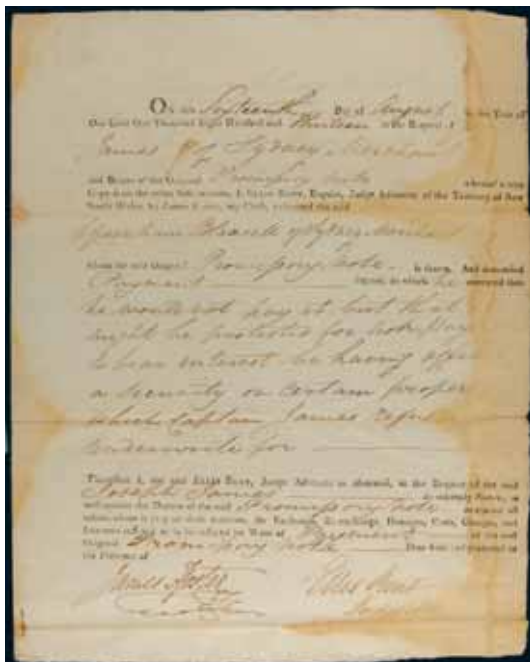 On the Sixteenth Day of August in the Year of
Our Lord One Thousand Eight Hundred and thirteen at the Request of
James of Sydney Merchant
and Bearer of the Original Promissory Note whereof a true
Copy is on the other Side written, I, ELLIS BENT, Esquire, Judge Advocate of the Territory of New
South Wales, by James Foster, my Clerk, exhibited the said
of Sydney
whom the said Original Promissory Note is drawn, And demanded
Payment thereof, to which he answered that
he would not pay it but that
might be protested for non pay
to bear interest he having offe
a Security on certain proper
which Captain James refus
underwrite for
Therefore I, the said ELLIS BENT, Judge Advocate as aforesaid, at the Request of the said
Joseph James
well against the Drawer of the said Promissory Note as against all
others whom it may or doth concern, for Exchange, Re-exchange, Damages, Costs, Charges, and
Interest suffered or to be suffered for Want of Payment of the said
Original Promissory Note Thus done and protested in
the Presence of
James Foster Ellis Bent